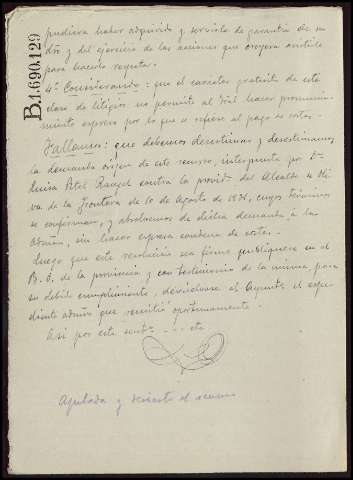 B.1.690.129
pudiera haber adquirido y servirle de garantía de su
dro y del ejercicio de las acciones que creyera asistirle
para hacerlo respetar.
4º Considerando: que el carácter gratuito de esta
clase de litigios no permite al Tral hacer pronunci-
amiento expreso por lo que se refiere al pago de costas.
Fallamos: que debemos desestimar y desestimamos
la demanda origen de este recurso, interpuesta por Dª
Luisa Rangel contra la provid. del Alcalde de
de la Frontera de 10 de Agosto de 1931, cuyos términos
se confirman, y absolvemos de dicha demanda á la
Admón, sin hacer expresa condena de costas.
Luego que esta resolución sea firme publíquese en el
B. O. de la provincia y con testimonio de la misma, para
su debido cumplimiento, devuélvase al Ayunt. el expe-
diente admvo que remitió oportunamente.
Así por esta sent. . . . . etc
Apelada y el recurso